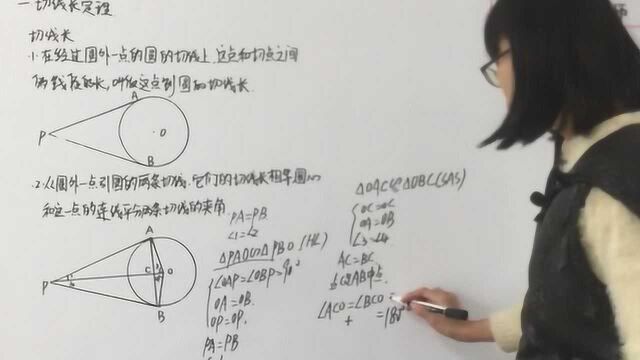 一 切线长定理
切线长
1. 在经过圆外一点的圆的切线上,这点和切点之间
的线段的长,叫做这点到圆的切线长.
A
P
O
B
2. 从圆外一点引圆的两条切线,它们的切线长相等,圆心
和这一点的连线平分两条切线的夹角
A
P
C
O
B
PA=PB
∠1=∠2
△PAO≌△PBO(HL)
∠OAP=∠OBP=90°
OA=OB.
OP=OP.
PA=PB
△OAC≌△OBC(SAS)
OC=OC
OA=OB
∠3=∠4
AC=BC.
点C是AB中点.
∠ACO=∠BCO
+ =180°